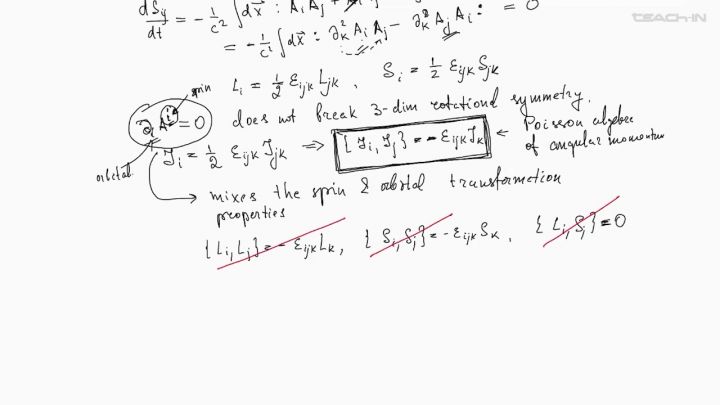 TEACH-IN
dS_ij/dt = -1/c² ∫dx⃗ : Ȧ_i A_j + = 0
= -1/c² ∫dx⃗ : ∂²_k A_i A_j - ∂²_k A_j A_i :
spin
L_i = 1/2 ε_ijk L_jk , S_i = 1/2 ε_ijk S_jk
∂_i A^i = 0 does not break 3-dim rotational symmetry.
orbital
J_i = 1/2 ε_ijk J_jk ⇒ {J_i, J_j} = -ε_ijk J_k ← Poisson algebra
of angular momentum
→ mixes the spin & orbital transformation
properties
{L_i, L_j} = -ε_ijk L_k, {S_i, S_j} = -ε_ijk S_k, {L_i, S_j} = 0